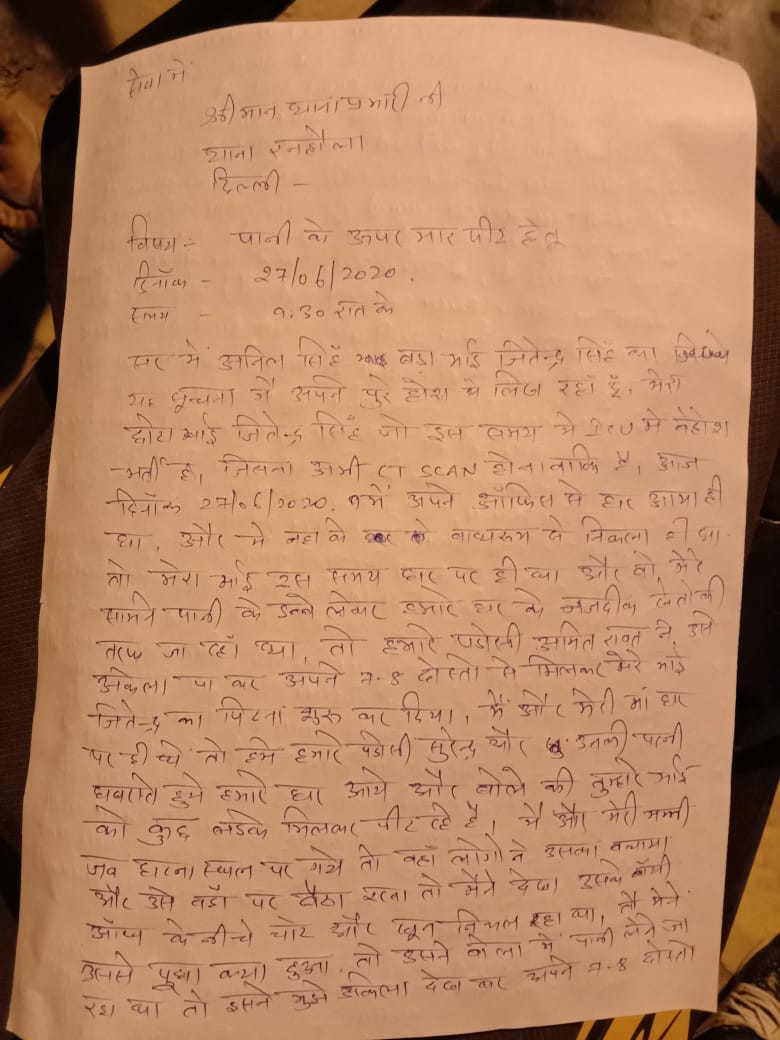 सेवा में
श्री मान थाना प्रभारी जी
थाना रनहौला
दिल्ली -
विषय :- पानी के ऊपर मार पीट हेतू
दिनाँक - 27/06/2020.
समय - 9:30 रात के
सर में अनिल सिंह बड़ा भाई जितेन्द्र सिंह का
यह सूचना में अपने पुरे होश से लिख रहाँ हूँ, मेरा
छोटा भाई जितेन्द्र सिंह जो इस समय मे ICU मे बेहोश
भर्ती है, जिसका अभी CT SCAN होना बाकि है, आज
दिनाँक 27/06/2020, में अपने ऑफिस से घर आया ही
था, और में नहा के बाथरूम से निकला ही था
तो मेरा भाई इस समय घर पर ही था और वो मेरे
सामने पानी के डब्बे लेकर हमारे घर के नजदीक खेतो की
तरफ जा रहाँ था, तो हमारे पडोसी अमित रावत ने उसे
अकेला पा कर अपने 7-8 दोस्तो से मिलकर मेरे भाई
जितेन्द्र का पिटना शुरू कर दिया, में और मेरी मां घर
पर ही थे तो हमे हमारे पडोसी सुरेन्द्र और उनकी पत्नी
घबराते हुये हमारे घर आये और बोले की तुम्हारे भाई
को कुछ लडके मिलकर पीट रहे है, मै और मेरी मम्मी
जब घटना स्थल पर गये तो वहाँ लोगो ने उसका
और उसे वहाँ पर बैठा रखा तो मैने देखा उसके
आँख के नीचे चोट और खून निकल रहा था, तो मेने
उससे पूछा क्या हुआ, तो उसने बोला में पानी लेने जा
रहा था तो इसने मुझे अकेला देख कर अपने 7-8 दोस्तो